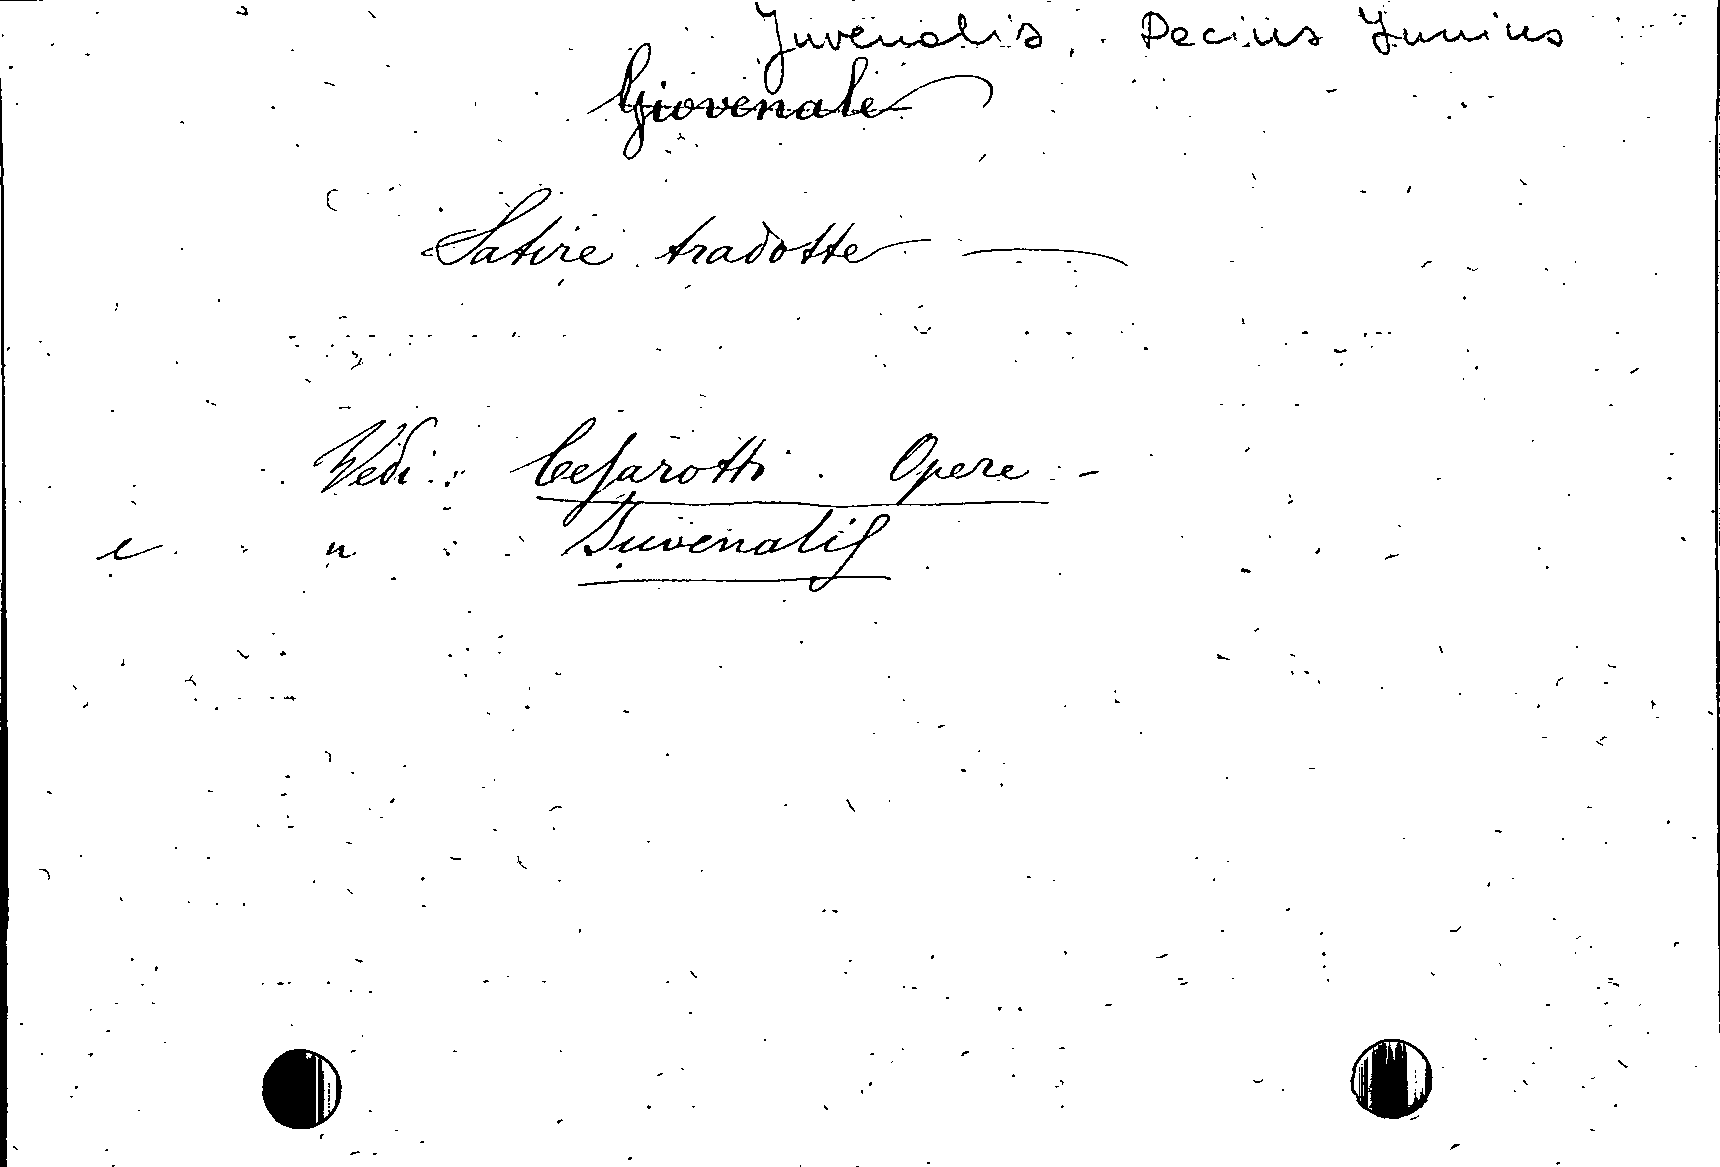 Juvenalis, Decius Junius
Giovenale
Satire tradotte
Vedi: Cesarotti. Opere -
e " : Juvenalis